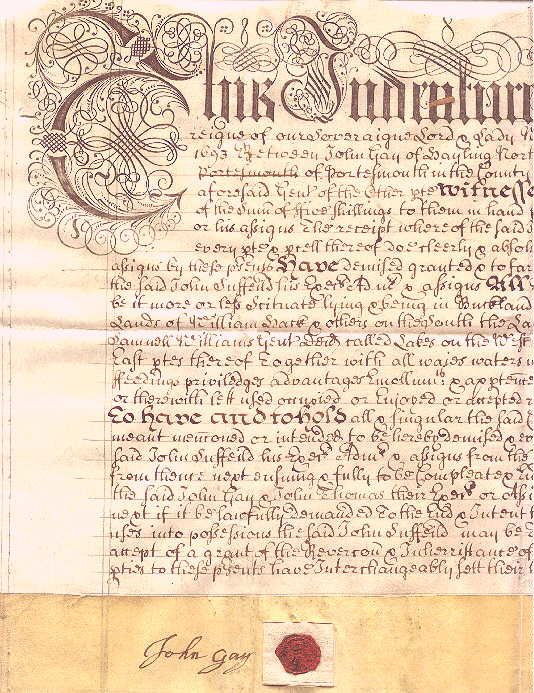 This Indenture
Reigne of our Soveraigne Lord & Lady
1693 Between John Gay of Hayling North
Portesmouth of Portesmouth in the County
aforesaid Gent of the Other pte Witnesse
of the Sum of ffive Shillings to them in hand
or his assigns the receipt whereof the said
every pte & pcell thereof Doe cleerly & absol
assigns by these psents Have demised granted & to far
the said John Suffeild his & assigns All
be it more or less Scituate lying & being in Buckland
Lands of William & others on the South the La
Williams Gent called Lakes on the West
East ptes thereof Together with all waies waters
ffeedings priviledges advantages Emollum & appten
or therewith lett used occupied or Enjoyed or accepted
To have and to hold all & singular the said
meant mencioned or intended to be hereby demised &
said John Suffeild his & assigns from the
from thence next ensuing & fully to be Compleat &
the said John Gay & John Thomas their or Assi
next if it be lawfully Demanded To the End & Intent
uses into possession the said John Suffeild may be
accept of a grant of the Revercon & Inherittance of
pties to these psents have Interchangeably sett their
John Gay